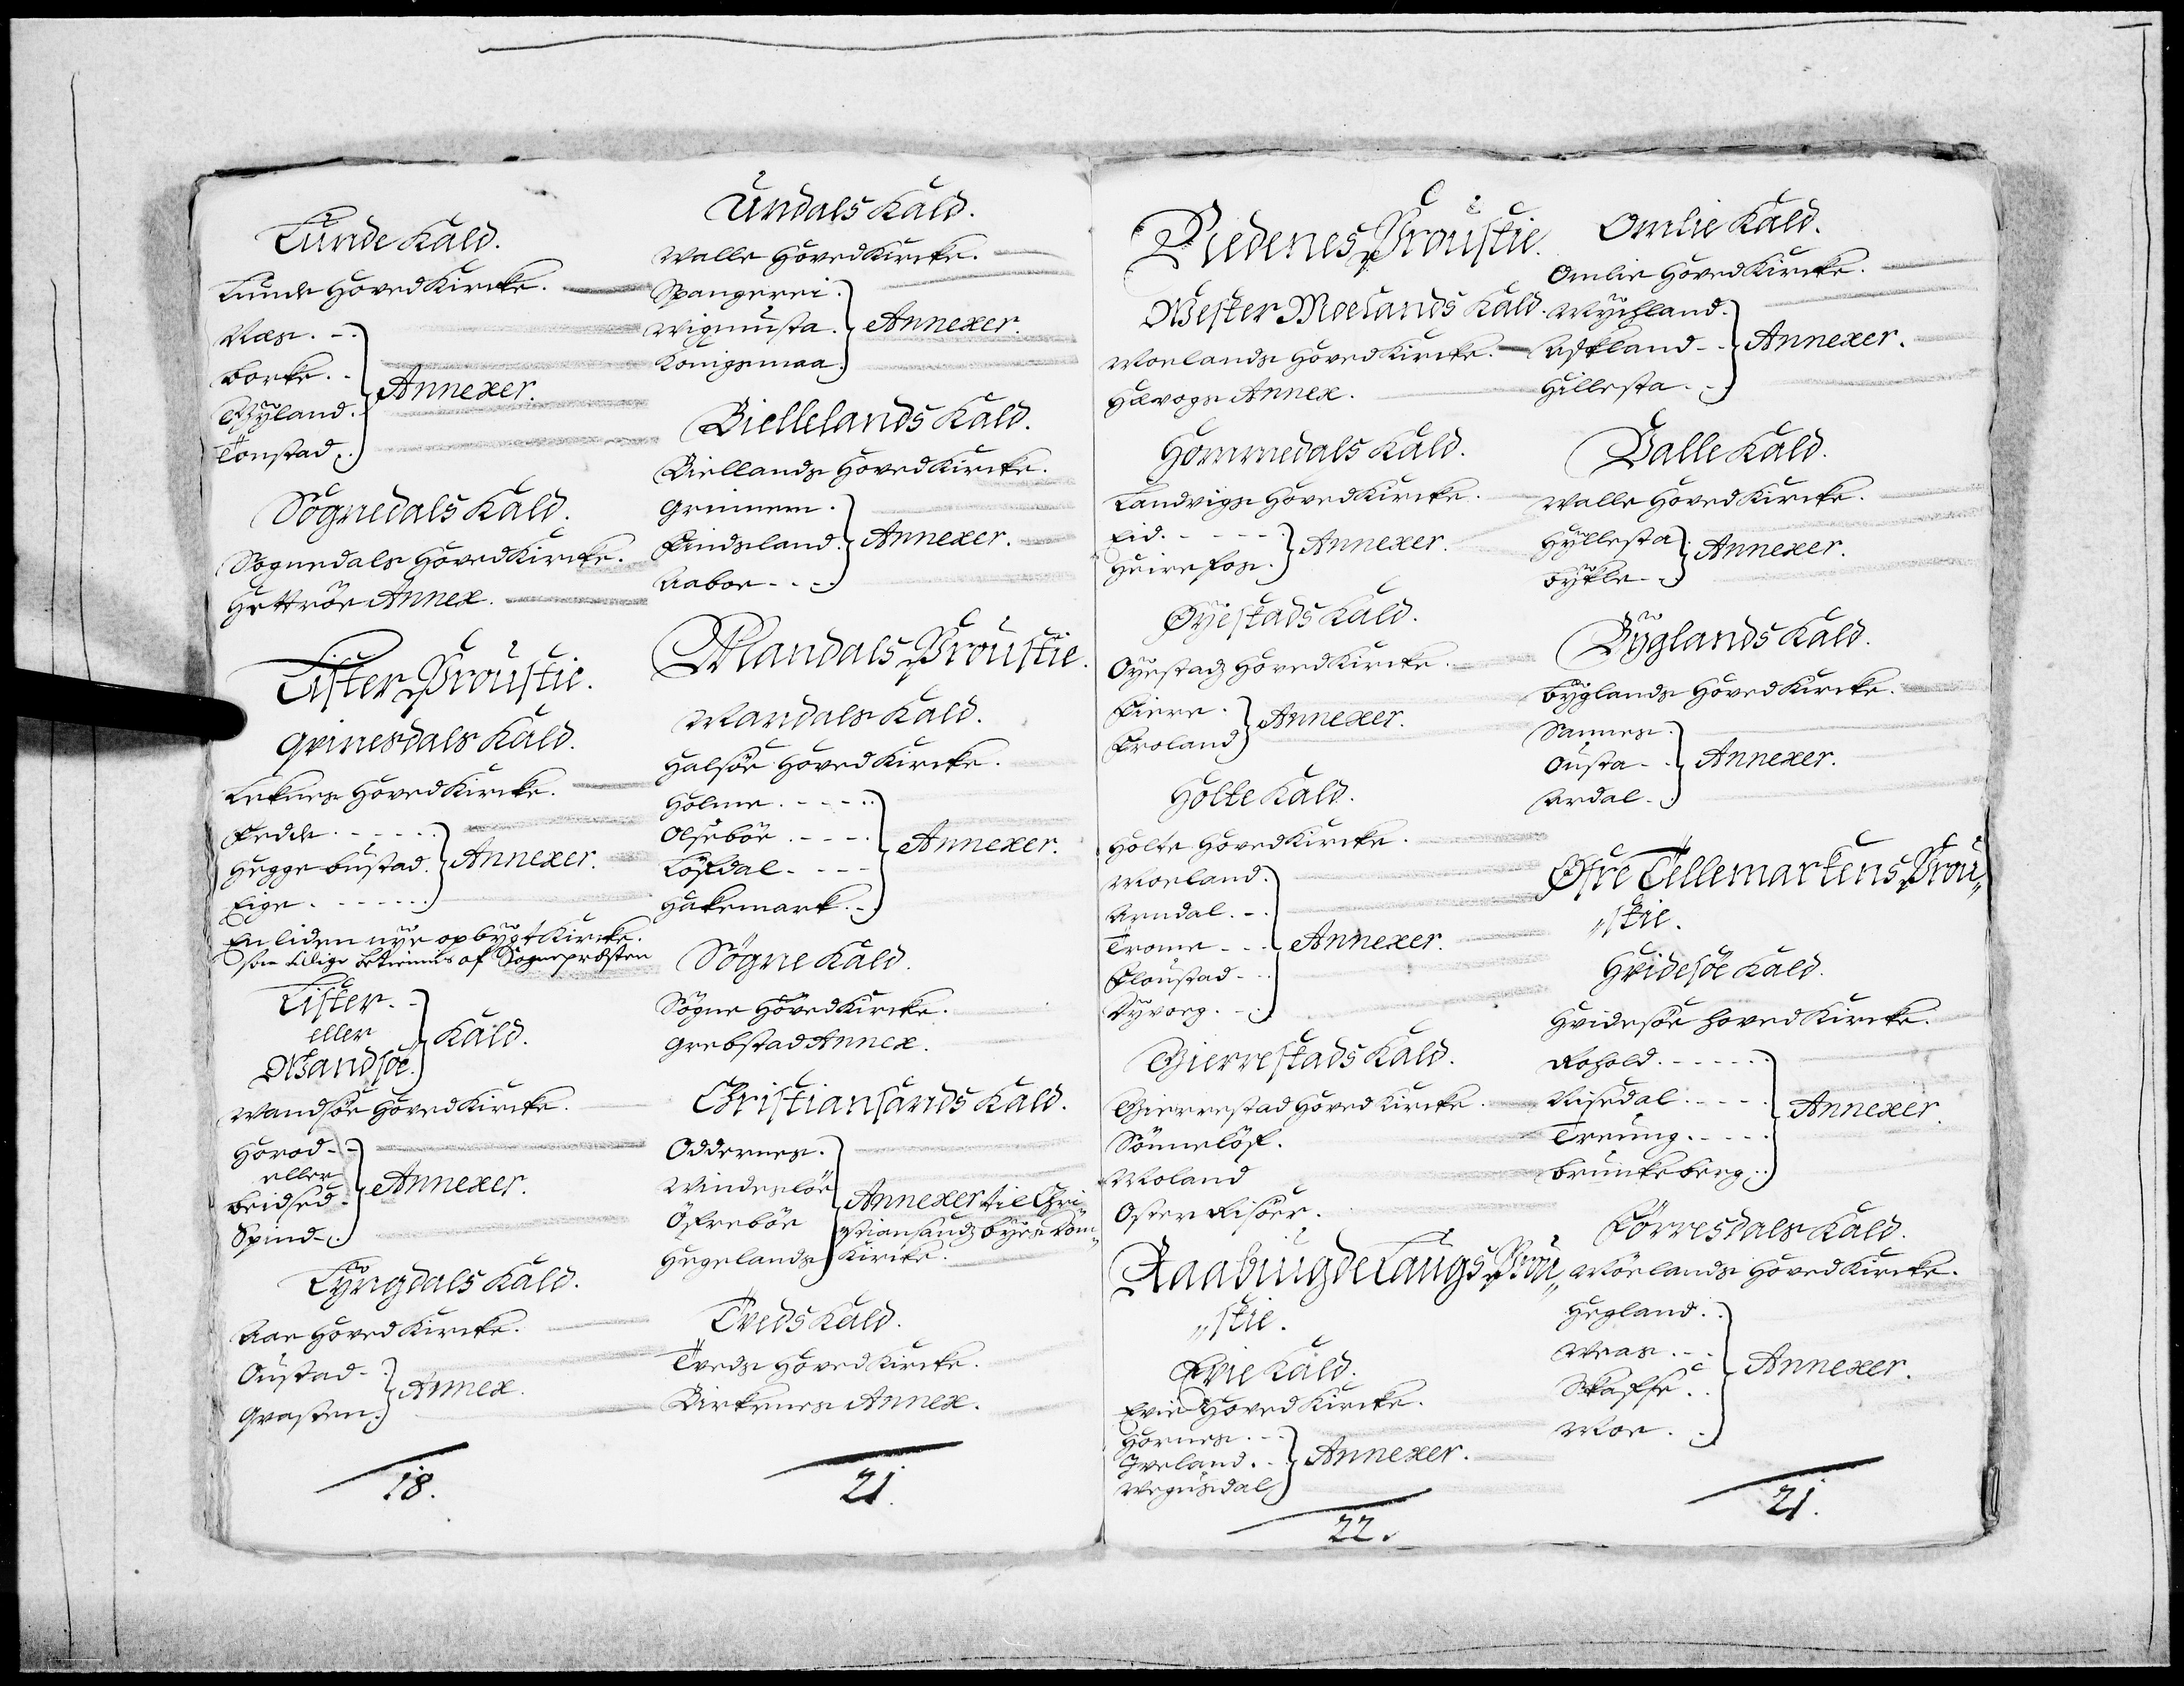 Lunde Kald.
Lunde HovedKircke.
Næs.
Backe.
Byland.
Tonstad.
Annexer.
Sognedals Kald.
Sognedals HovedKircke.
Hettröe Annex.
Lister Proustie.
Qvinesdals Kald.
Lecknes HovedKircke.
Fedde.
Heggebustad.
Eige.
Annexer.
En liden nye opbÿgt Kircke.
som tilige betienis af Sognepræsten
Lister
eller
Wandsöe.
Kald.
Wandsöe HovedKircke.
Herod
eller
Beidsed
Spind
Annexer.
Lÿngdals Kald.
Aae HovedKircke.
Oustad
Qvasten.
Annex.
18.
Undals Kald.
Walle HovedKircke.
Spangerei.
Wigmusta.
Konigsmaa.
Annexer.
Biellelands Kald.
Biellands HovedKircke.
Grimnem.
Findsland.
Aaboe
Annexer.
Mandals Proustie.
Mandals Kald.
Halsöe HovedKircke.
Holme.
Ölseböe.
Löfdal.
Hakemark.
Annexer.
Sögne Kald.
Sögne HovedKircke.
Grebstad Annex.
Christiansands Kald.
Oddernes.
Windeslöe
Öfreböe
Hegelands
Annexer til Chri
stiansands Bÿes Dom„
Kircke.
Tveds Kald.
Tveds HovedKircke.
Birkenes Annex.
21.
Nedenes Proustie.
Wester Moelands Kald.
Moelands HovedKircke.
Høvogs Annex.
Hommedals Kald.
Landvigs HovedKircke.
Eid.
Heirefos.
Annexer.
Øÿestads Kald.
Oÿestads HovedKircke.
Fiere.
Froland
Annexer.
Holte Kald.
Holte HovedKircke.
Moeland.
Arndal.
Trome
Floustad
Dÿvoeg.
Annexer.
Gierrestads Kald.
Gierrestad HovedKircke.
Sönnelöf.
Moland
Oster Risöer.
Raabiugdelaugs Prou„
„stie.
Evie Kald.
Evie HovedKircke.
Hornes.
Iveland.
Wegusdal
Annexer.
22.
Omlie Kald.
Omlie HovedKircke.
Mÿchland.
Askland
Hillesta.
Annexer.
Valle Kald.
Walle HovedKircke.
Hÿllesta
Bÿkle
Annexer.
Bÿglands Kald.
Bÿglands HovedKircke.
Sannes.
Ousta
Ardal.
Annexer.
Øfre Tellemarkens Prou„
„stie.
Hvidesöe Kald.
Hvidesöe HovedKircke.
Rohold.
Nisedal.
Treung.
Brunkeberg.
Annexer.
Förresdals Kald.
Möelands HovedKircke.
Hegland.
Skafse.
Moe.
Annexer.
21.